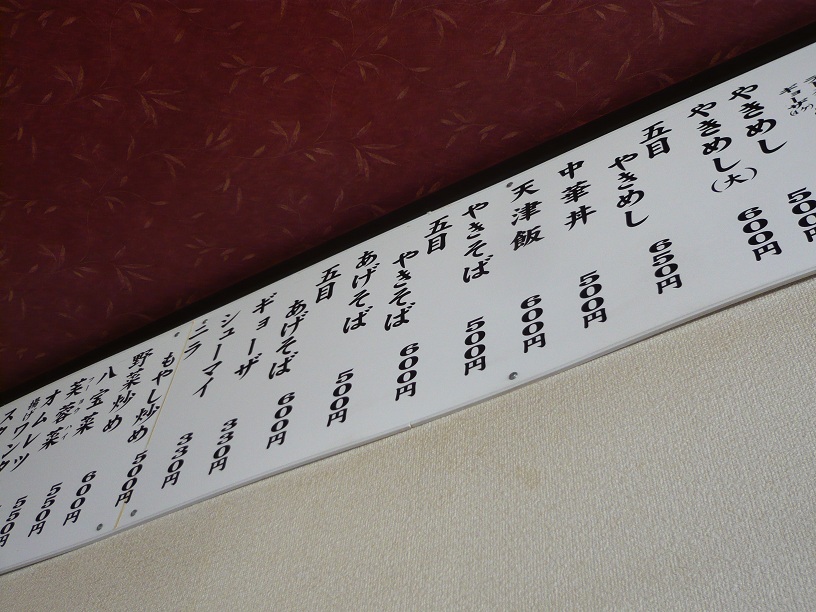 やきめし 500円
やきめし(大) 600円
五目やきめし 650円
中華丼 500円
天津飯 600円
やきそば 500円
五目やきそば 600円
あげそば 500円
五目あげそば 600円
ギョーザ 330円
シューマイ 330円
ニラもやし炒め 500円
野菜炒め
八宝菜 600円
芙蓉菜 550円
オムレツ 550円